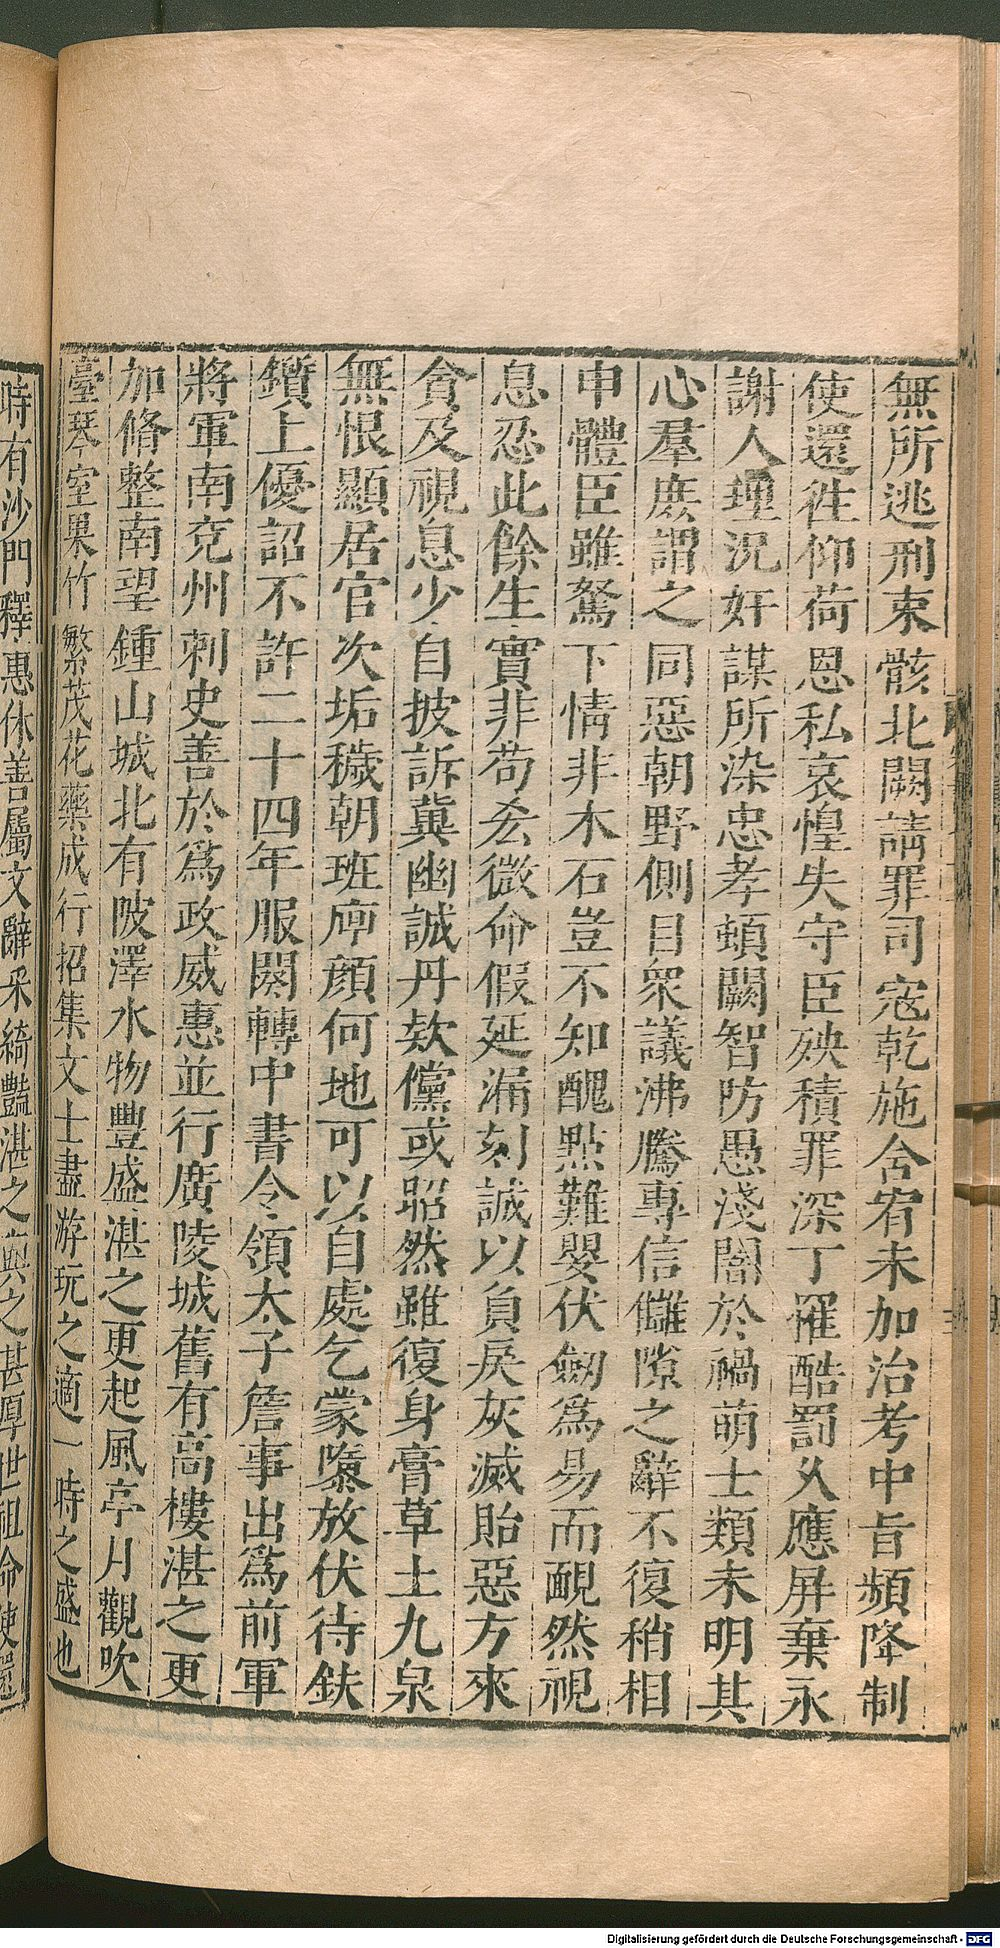 無所逃刑束骸北闕請罪司寇乾施含宥未加治考中旨頻降制
使還徃仰荷恩私哀惶失守臣殃積罪深丁罹酷罰久應屏棄永
謝人理況奸謀所染忠孝頓闕智防愚淺闇於禍萌士類未明其
心羣庶謂之同惡朝野側目衆議沸騰專信讎隙之辭不復稍相
申體臣雖駑下情非木石豈不知醜點難嬰伏劒爲易而靦然視
息忍此餘生實非苟吝微命假延漏刻誠以負戾灰滅貽惡方來
貪及視息少自披訴冀幽誠丹欵儻或昭然雖復身膏草土九泉
無恨顯居官次垢穢朝班厚顔何地可以自處乞蒙隳放伏待鈇
鑕上優詔不許二十四年服闋轉中書令領太子詹事出爲前軍
將軍南兖州刺史善於爲政威惠並行廣陵城舊有高樓湛之更
加脩整南望鍾山城北有陂澤水物豐盛湛之更起風亭月觀吹
臺琴室果竹繁茂花藥成行招集文士盡游玩之適一時之盛也
時有沙門釋惠休善屬文辭采綺豔湛之與之甚厚世祖命使還
Digitalisierung gefördert durch die Deutsche Forschungsgemeinschaft - DFG